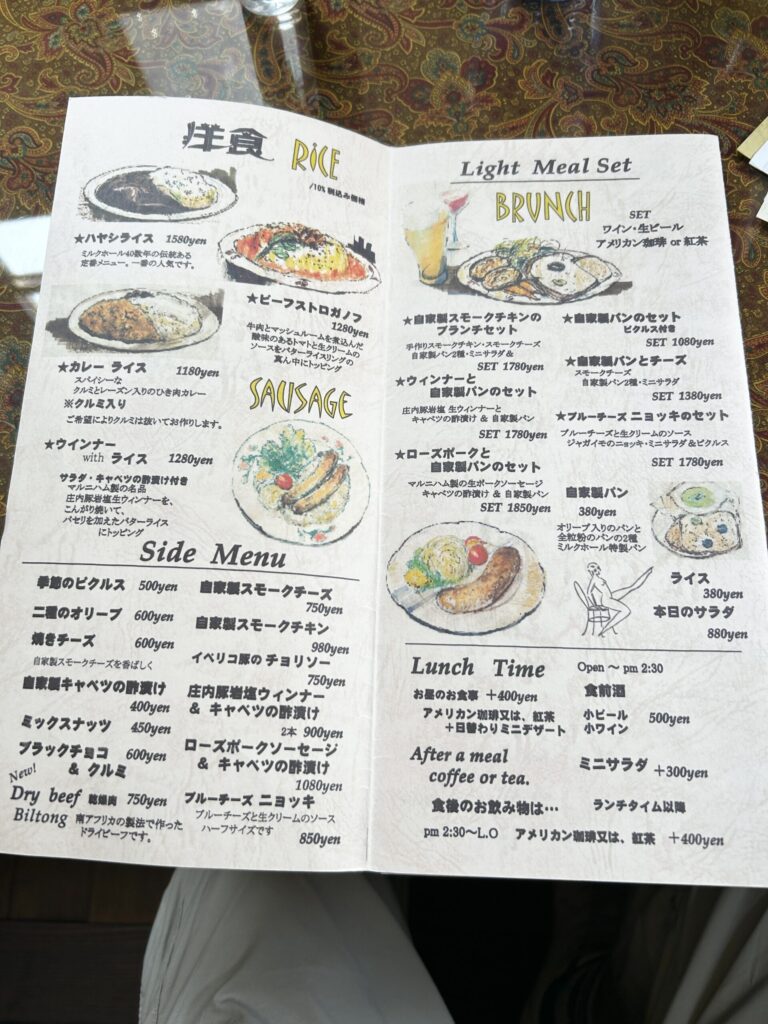 洋食 RICE
/10%税込み価格
★ハヤシライス 1580yen
ミルクホール40数年の伝統ある
定番メニュー。一番の人気です。
★ビーフストロガノフ
1280yen
牛肉とマッシュルームを煮込んだ
酸味のあるトマトと生クリームの
ソースをバターライスリングの
真ん中にトッピング
★カレー ライス 1180yen
スパイシーな
クルミとレーズン入りのひき肉カレー
※クルミ入り
ご希望によりクルミは抜いてお作りします。
SAUSAGE
★ウインナー
with ライス 1280yen
サラダ・キャベツの酢漬け付き
マルニハム製の名品
庄内豚岩塩生ウインナーを、
こんがり焼いて、
パセリを加えたバターライス
にトッピング
Side Menu
季節のピクルス 500yen
二種のオリーブ 600yen
焼きチーズ 600yen
自家製スモークチーズを香ばしく
自家製キャベツの酢漬け
400yen
ミックスナッツ 450yen
ブラックチョコ 600yen
& クルミ
New!
Dry beef 乾燥肉 750yen
Biltong 南アフリカの製法で作った
ドライビーフです。
自家製スモークチーズ
750yen
自家製スモークチキン
980yen
イベリコ豚の チョリソー
750yen
庄内豚岩塩ウィンナー
& キャベツの酢漬け
2本 900yen
ローズポークソーセージ
& キャベツの酢漬け
1080yen
ブルーチーズ ニョッキ
ブルーチーズと生クリームのソース
ハーフサイズです
850yen
Light Meal Set
BRUNCH
SET
ワイン・生ビール
アメリカン珈琲 or 紅茶
★自家製スモークチキンの
ブランチセット
手作りスモークチキン・スモークチーズ
自家製パン2種・ミニサラダ&
SET 1780yen
★ウィンナーと
自家製パンのセット
庄内豚岩塩 生ウィンナーと
キャベツの酢漬け & 自家製パン
SET 1780yen
★ローズポークと
自家製パンのセット
マルニハム製の生ポークソーセージ
キャベツの酢漬け & 自家製パン
SET 1850yen
★自家製パンのセット
ピクルス付き
SET 1080yen
★自家製パンとチーズ
スモークチーズ
自家製パン2種・ミニサラダ
SET 1380yen
★ブルーチーズ ニョッキのセット
ブルーチーズと生クリームのソース
ジャガイモのニョッキ・ミニサラダ&ピクルス
SET 1780yen
自家製パン
380yen
オリーブ入りのパンと
全粒粉のパンの2種
ミルクホール特製パン
ライス
380yen
本日のサラダ
880yen
Lunch Time Open 〜 pm 2:30
お昼のお食事 +400yen
アメリカン珈琲又は、紅茶
+日替わりミニデザート
食前酒
小ビール
小ワイン 500yen
After a meal
coffee or tea.
ミニサラダ +300yen
食後のお飲み物は… ランチタイム以降
pm 2:30〜L.O アメリカン珈琲又は、紅茶 +400yen